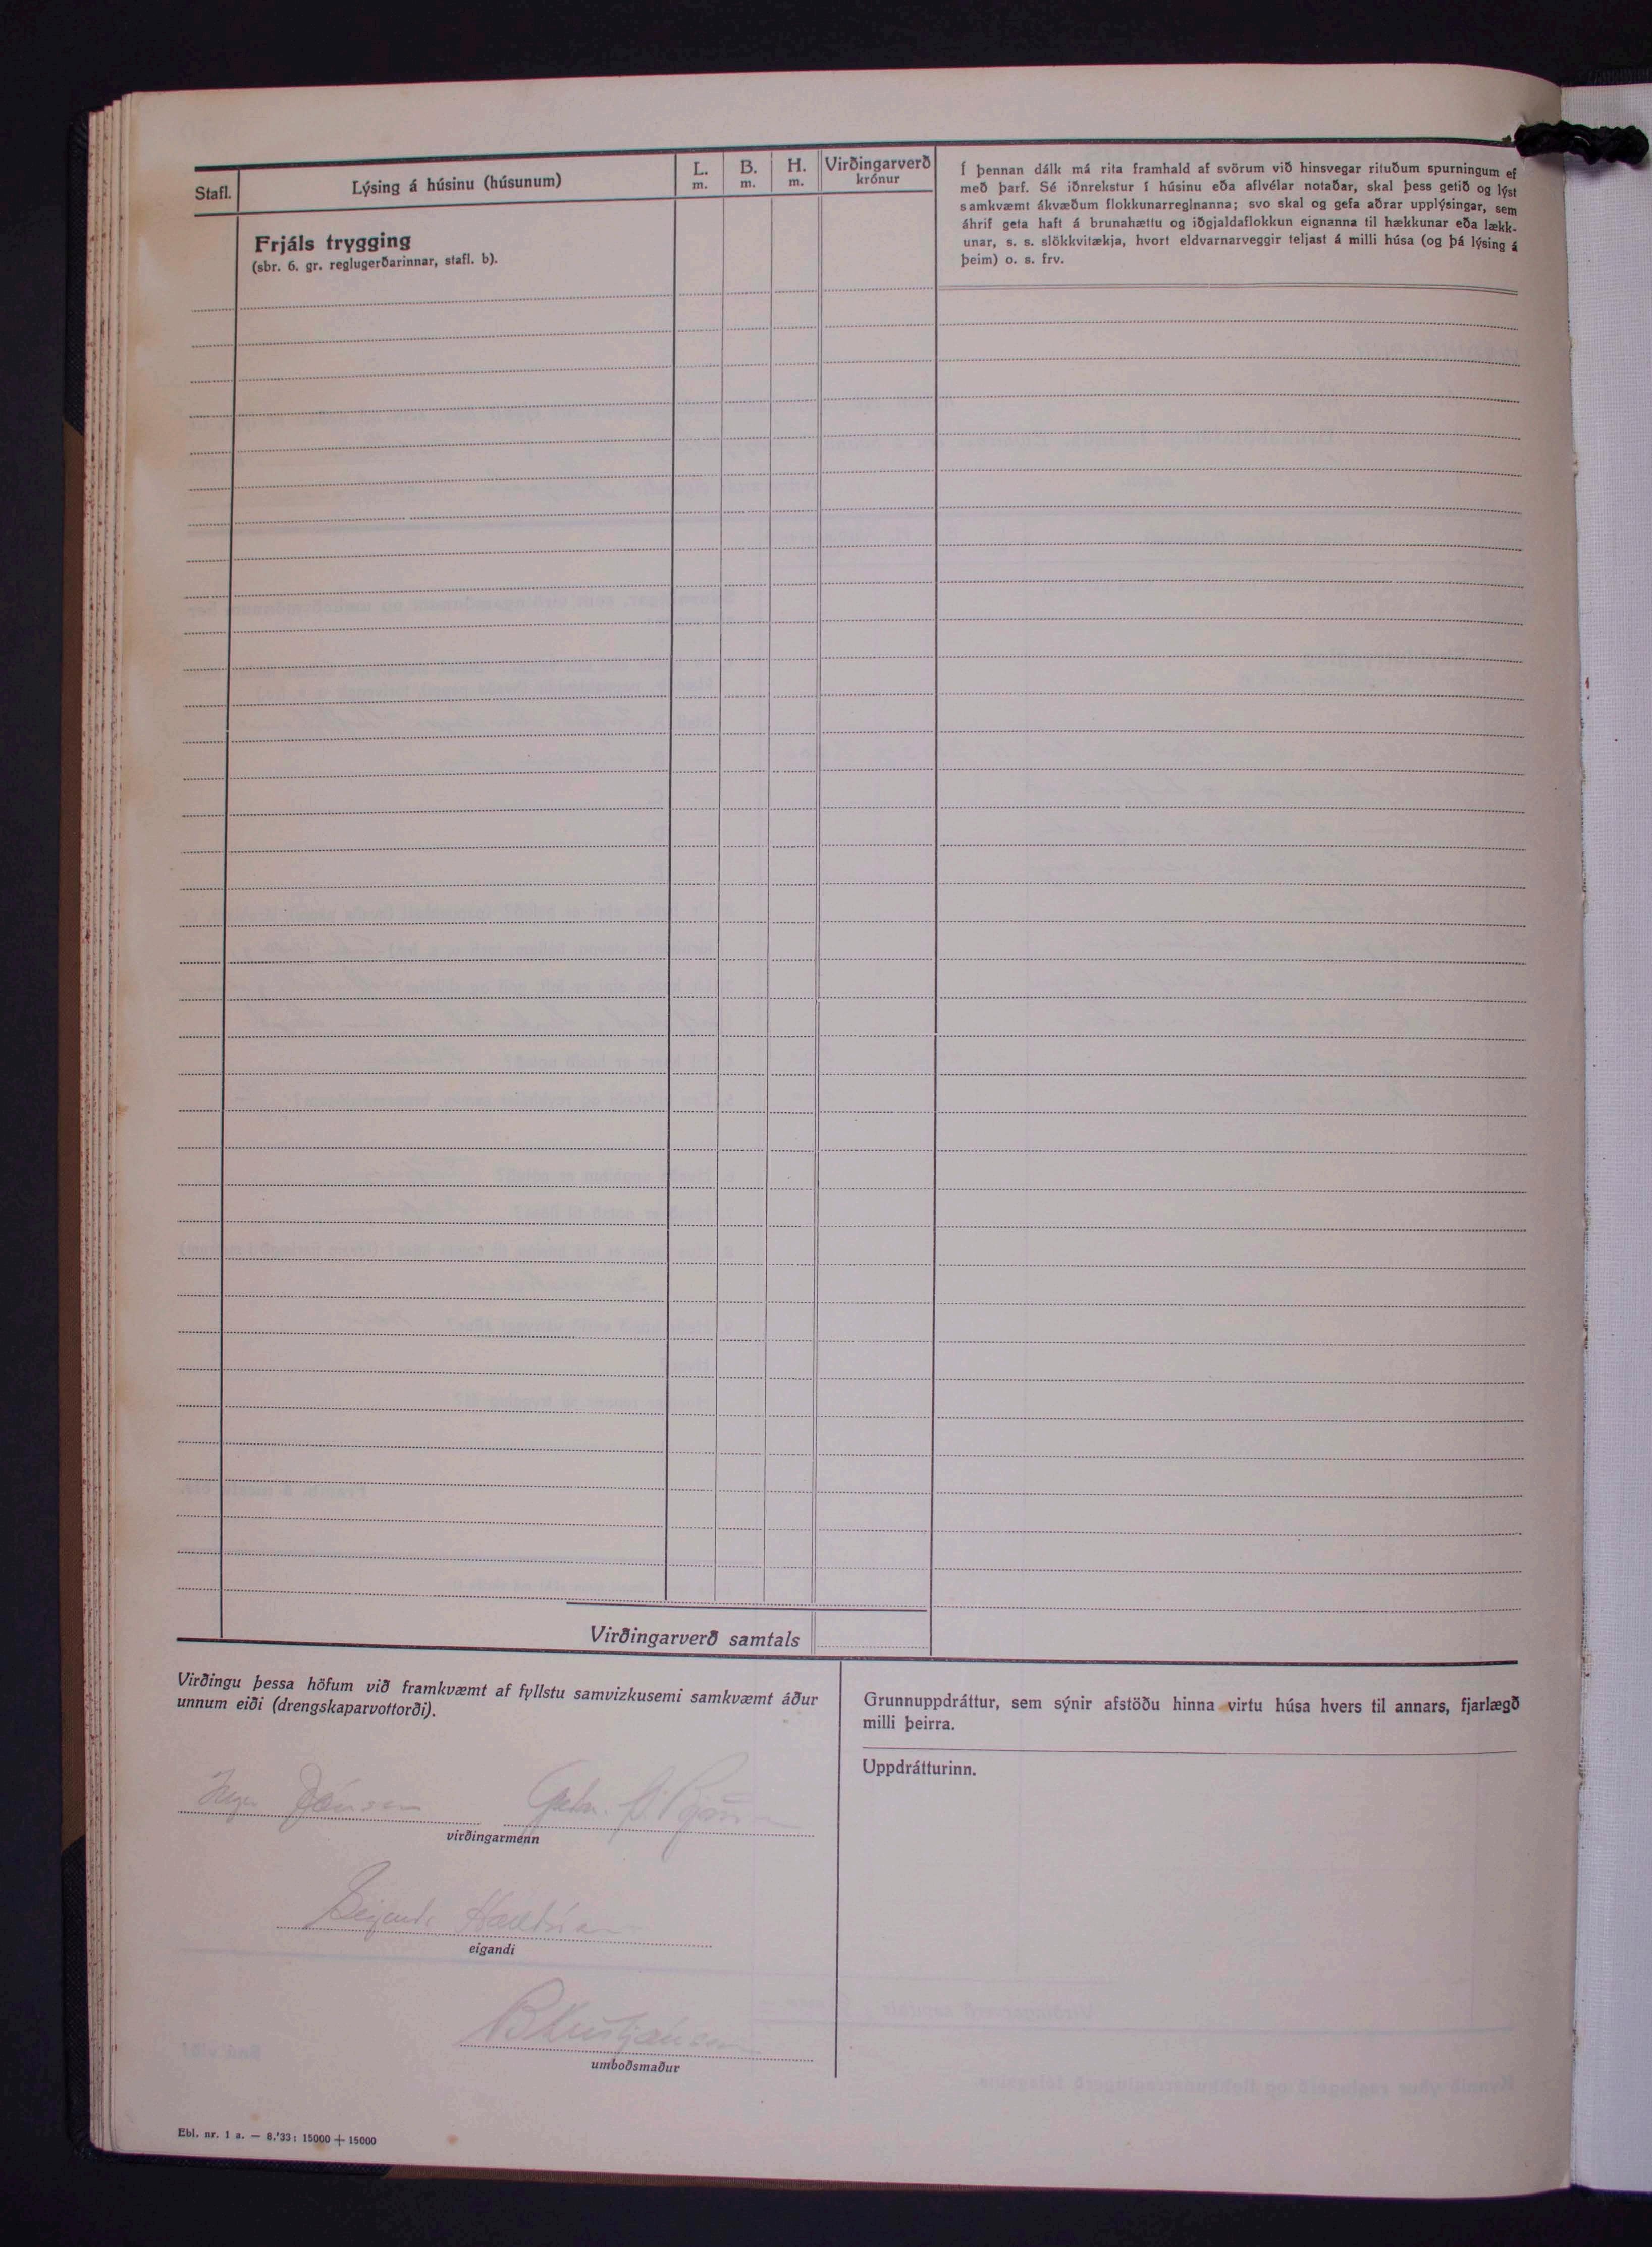 Stafl.
Lýsing á húsinu (húsunum)
L.
m.
B.
m.
H.
m.
Virðingarverð
krónur
Frjáls trygging
(sbr. 6. gr. reglugerðarinnar, stafl. b).
Í þennan dálk má rita framhald af svörum við hinsvegar rituðum spurningum ef
með þarf. Sé iðnrekstur í húsinu eða aflvélar notaðar, skal þess getið og lýst
samkvæmt ákvæðum flokkunarreglnanna; svo skal og gefa aðrar upplýsingar, sem
áhrif geta haft á brunahættu og iðgjaldaflokkun eignanna til hækkunar eða lækk-
unar, s. s. slökkvitækja, hvort eldvarnarveggir teljast á milli húsa (og þá lýsing á
þeim) o. s. frv.
Virðingarverð samtals
Virðingu þessa höfum við framkvæmt af fyllstu samvizkusemi samkvæmt áður
unnum eiði (drengskaparvottorði).
Jónsson
virðingarmenn
eigandi
BKristjánsson
umboðsmaður
Grunnuppdráttur, sem sýnir afstöðu hinna virtu húsa hvers til annars, fjarlægð
milli þeirra.
Uppdrátturinn.
Ebl. nr. 1 a. — 8.'33: 15000 + 15000